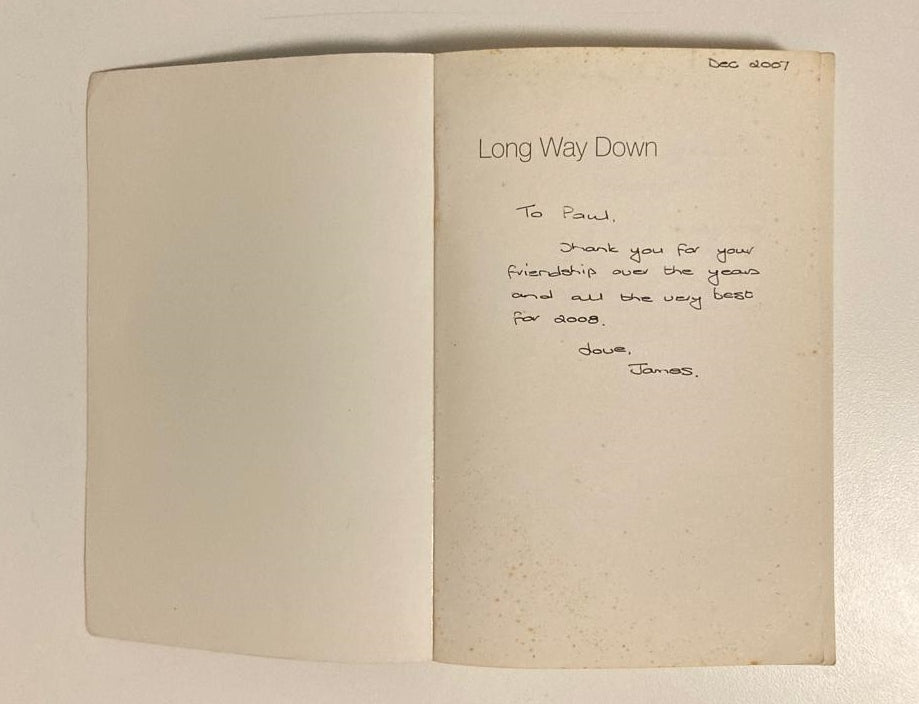 Dec 2007
Long Way Down
To Paul,
Thank you for your
friendship over the years
and all the very best
for 2008.
Love,
James.